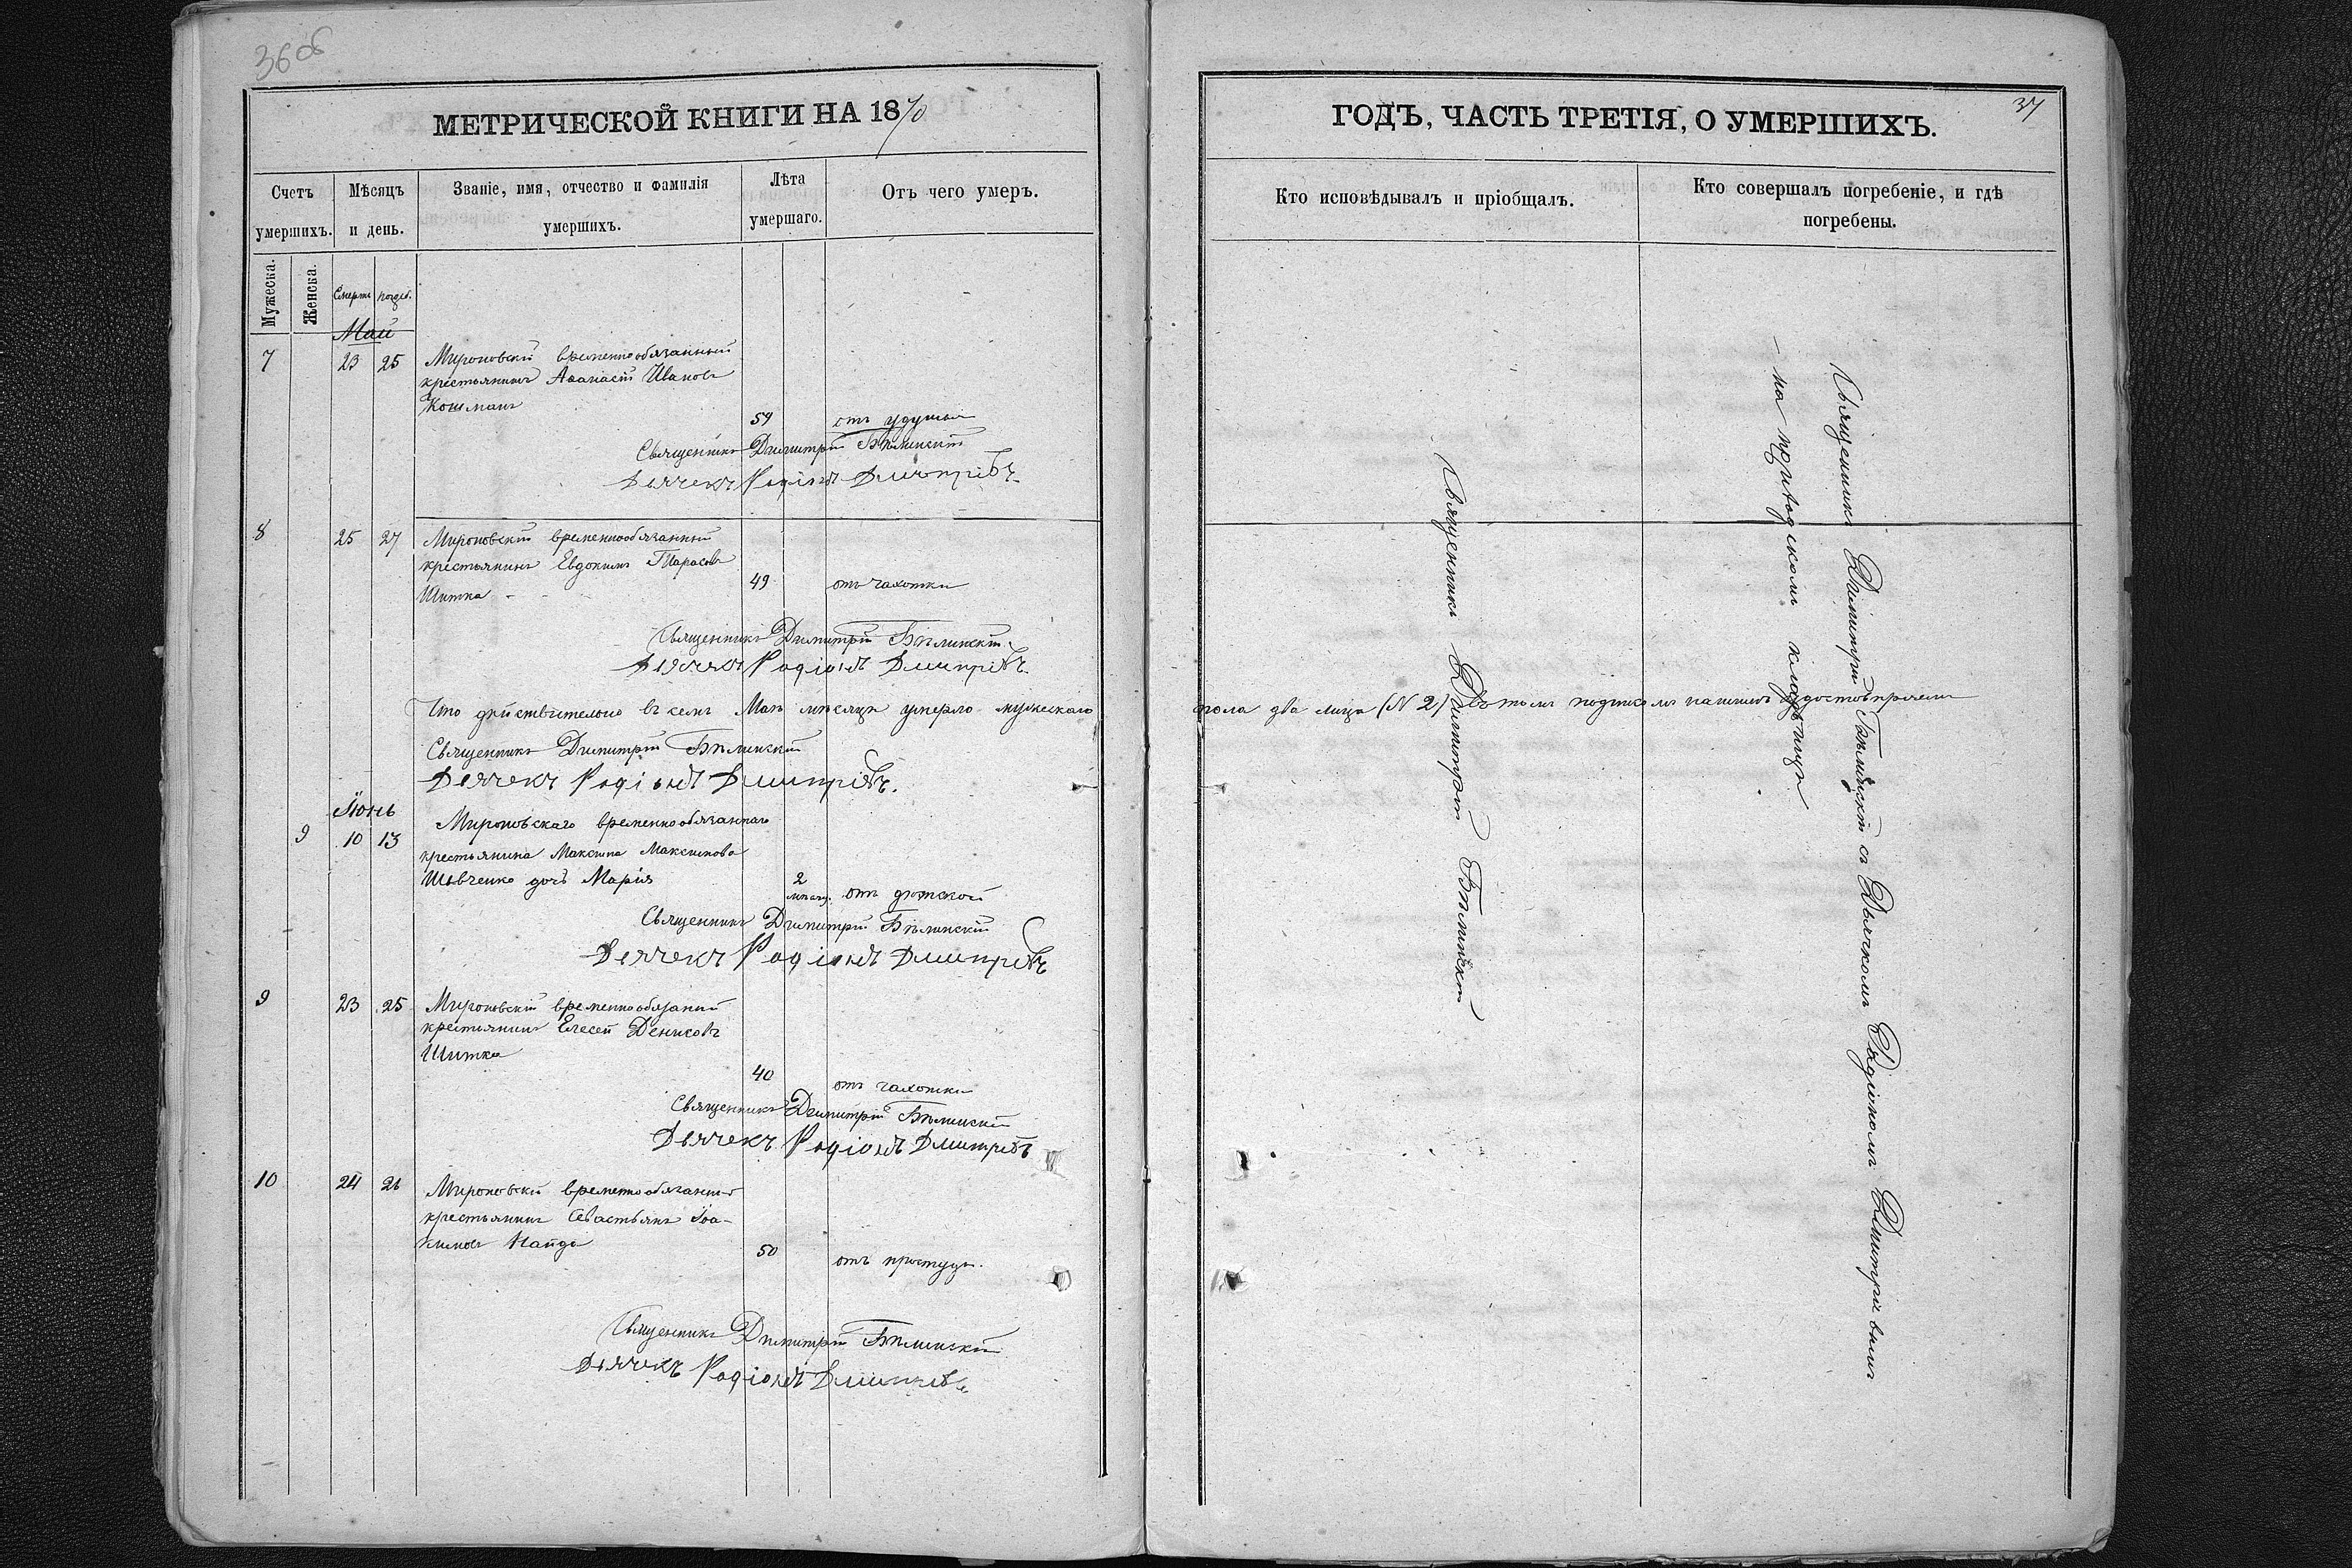 36 об
МЕТРИЧЕСКОЙ КНИГИ НА 1870
Счетъ умершихъ.
Мѣсяцъ и день.
Званіе, имя, отчество и фамилія умершихъ.
Лѣта умершаго.
Отъ чего умеръ.
Мужеска.
Женска.
Смерти
погреб.
Май
7 23 25 Мироновскій временнообязанный
крестьянинъ Аѳанасій Ивановъ
Кошманъ
59 отъ удушья
Священникъ Димитрій Бѣлинскій
Дячекъ Родіонъ Дмитріевъ
8 25 27 Мироновскій временнообязанный
крестьянинъ Евдокимъ Тарасовъ
Шитка
49 отъ чахотки
Священникъ Димитрій Бѣлинскій
Дячекъ Родіонъ Дмитріевъ
Что дѣйствительно въ семъ Маѣ мѣсяцѣ умерло мужескаго
Священникъ Димитрій Бѣлинскій
Дячекъ Родіонъ Дмитріевъ.
Іюнь
9 10 13 Мироновскаго временнообязаннаго
крестьянина Максима Максимова
Шевченко дочь Марія
2 мѣсяц. отъ дѣтской
Священникъ Димитрій Бѣлинскій
Дячекъ Родіонъ Дмитріевъ
9 23 25 Мироновскій временнообязаный
крестьянинъ Елесей Денисовъ
Шитка
40 отъ чахотки
Священникъ Димитрій Бѣлинскій
Дьячекъ Родіонъ Дмитріевъ
10 24 26 Мироновскій временнообязаный
крестьянинъ Севастьянъ Іоа-
кимовъ Найда
50 отъ простуды.
Священникъ Димитрій Бѣлинскій
Дьячекъ Родіонъ Дмитріевъ
37
ГОДЪ, ЧАСТЬ ТРЕТІЯ, О УМЕРШИХЪ.
Кто исповѣдывалъ и пріобщалъ.
Кто совершалъ погребеніе, и гдѣ погребены.
пола два лица (N 2) въ томъ подписомъ нашимъ удостовѣряемъ
Священникъ Димитрій Бѣлинскій
Священникъ Димитрій Бѣлинскій съ Дьячкомъ Родіономъ Дмитріевымъ
на приходскомъ кладбищѣ